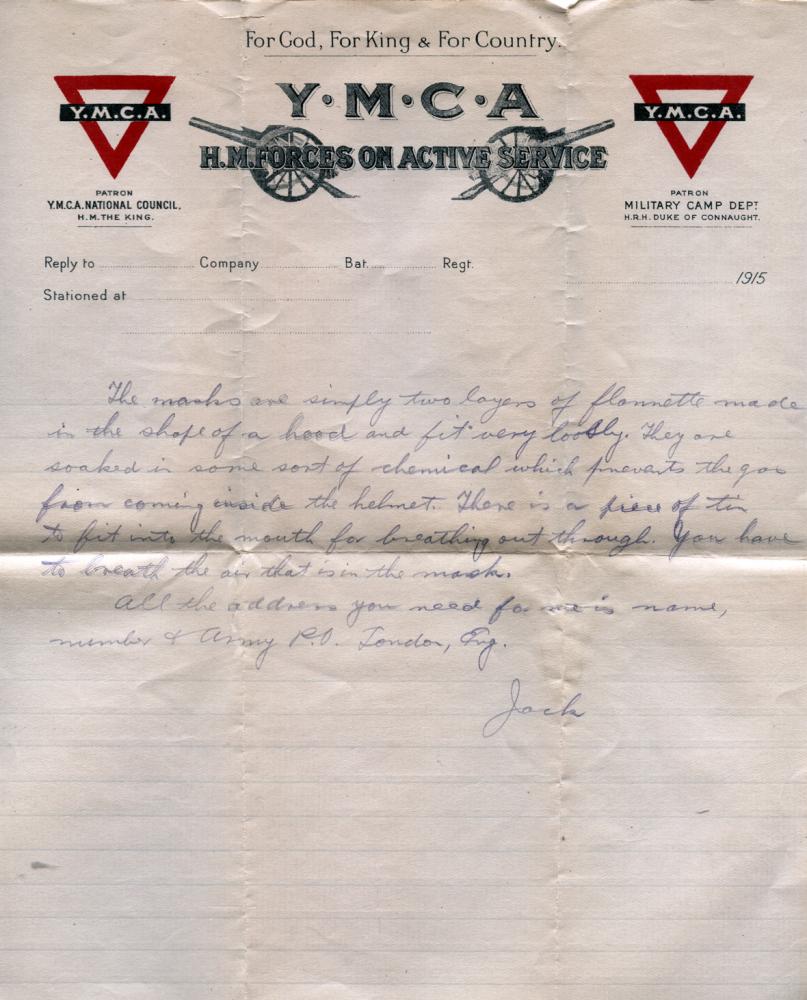 For God, For King & For Country.
Y·M·C·A
H.M. FORCES ON ACTIVE SERVICE
Y.M.C.A.
PATRON
Y.M.C.A. NATIONAL COUNCIL.
H.M. THE KING.
Y.M.C.A.
PATRON
MILITARY CAMP DEPT
H.R.H. DUKE OF CONNAUGHT.
Reply to Company Bat. Regt.
1915
Stationed at
The masks are simply two layers of flannette made
in the shape of a hood and fit very loosly. They are
soaked in some sort of chemical which prevents the gas
from coming inside the helmet. There is a piece of tin
to fit into the mouth for breathing out through. You have
to breath the air that is in the mask.
All the address you need for me is name,
number & Army P.O. London, Eng.
Jack